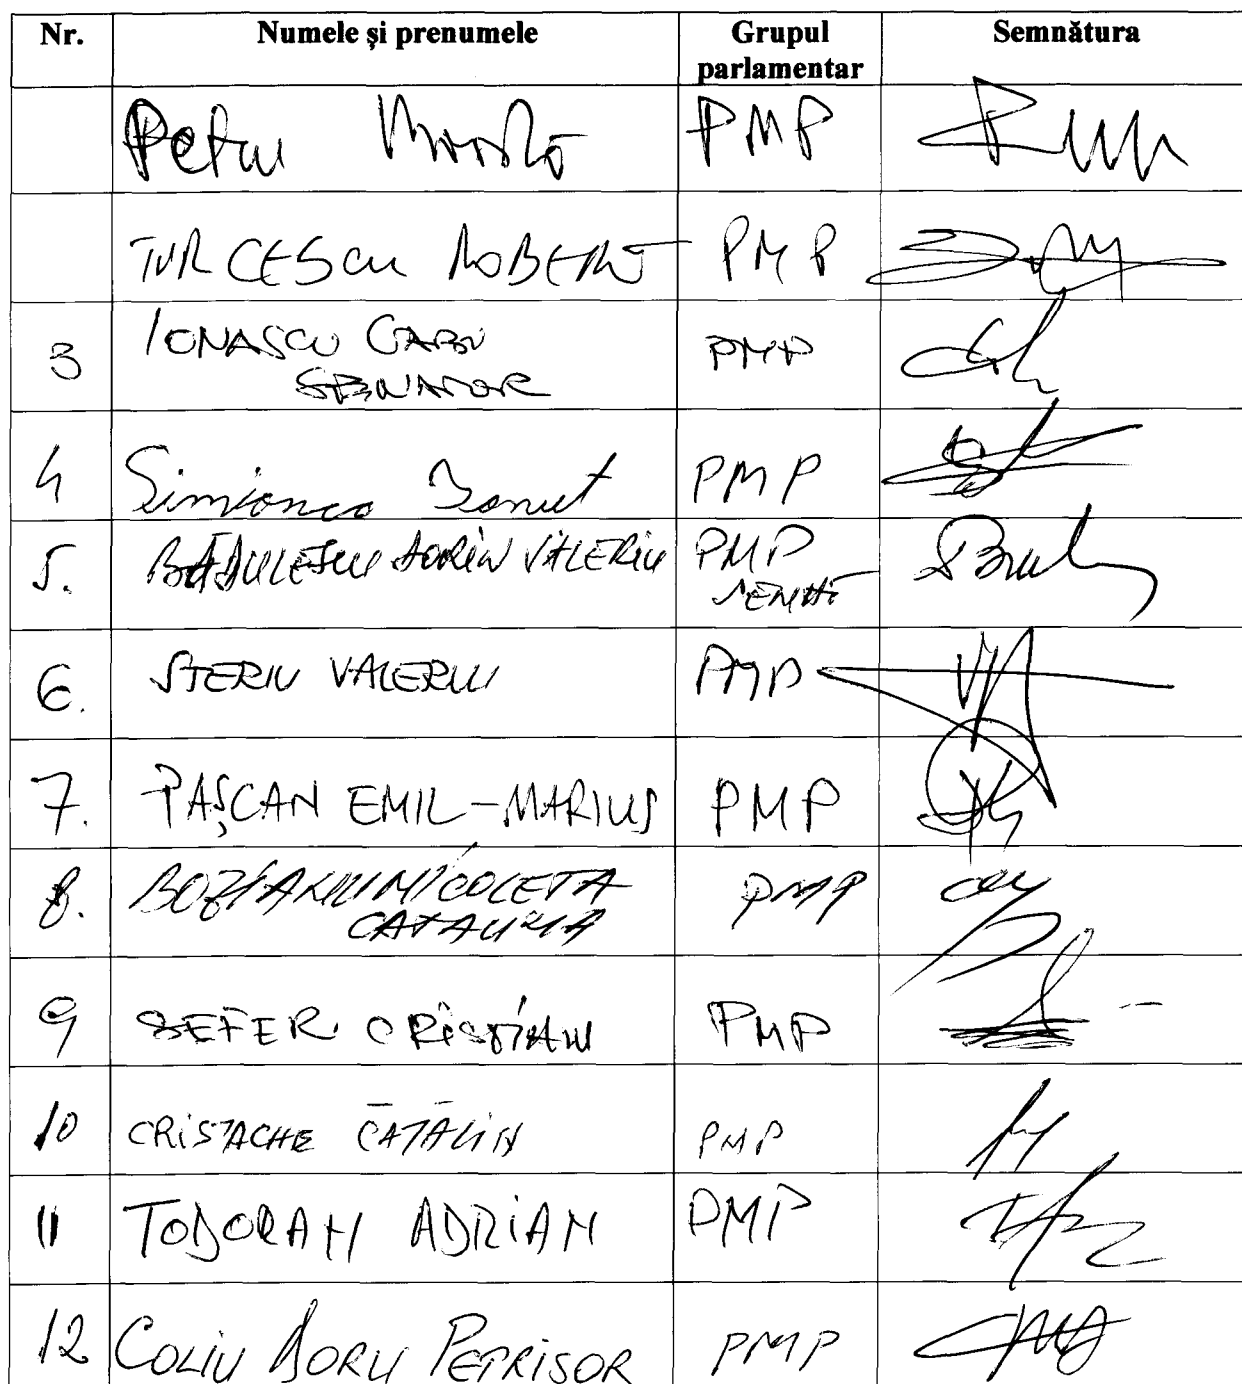 Nr. Numele și prenumele Grupul parlamentar Semnătura
Petru PMP
TURCESCU ROBERT PMP
3 IONASCU GABI PMP
SENATOR
4 Simionca Ionut PMP
5. BĂDULESCU DORIN VALERIU PMP
SENAT
6. STERIU VALERIU PMP
7. PAȘCAN EMIL-MARIUS PMP
8. BOZIANU NICOLETA PMP
CATALINA
9 SEFER CRISTIAN PMP
10 CRISTACHE CATALIN PMP
11 TODORAN ADRIAN PMP
12 COLIU DORU PETRISOR PMP